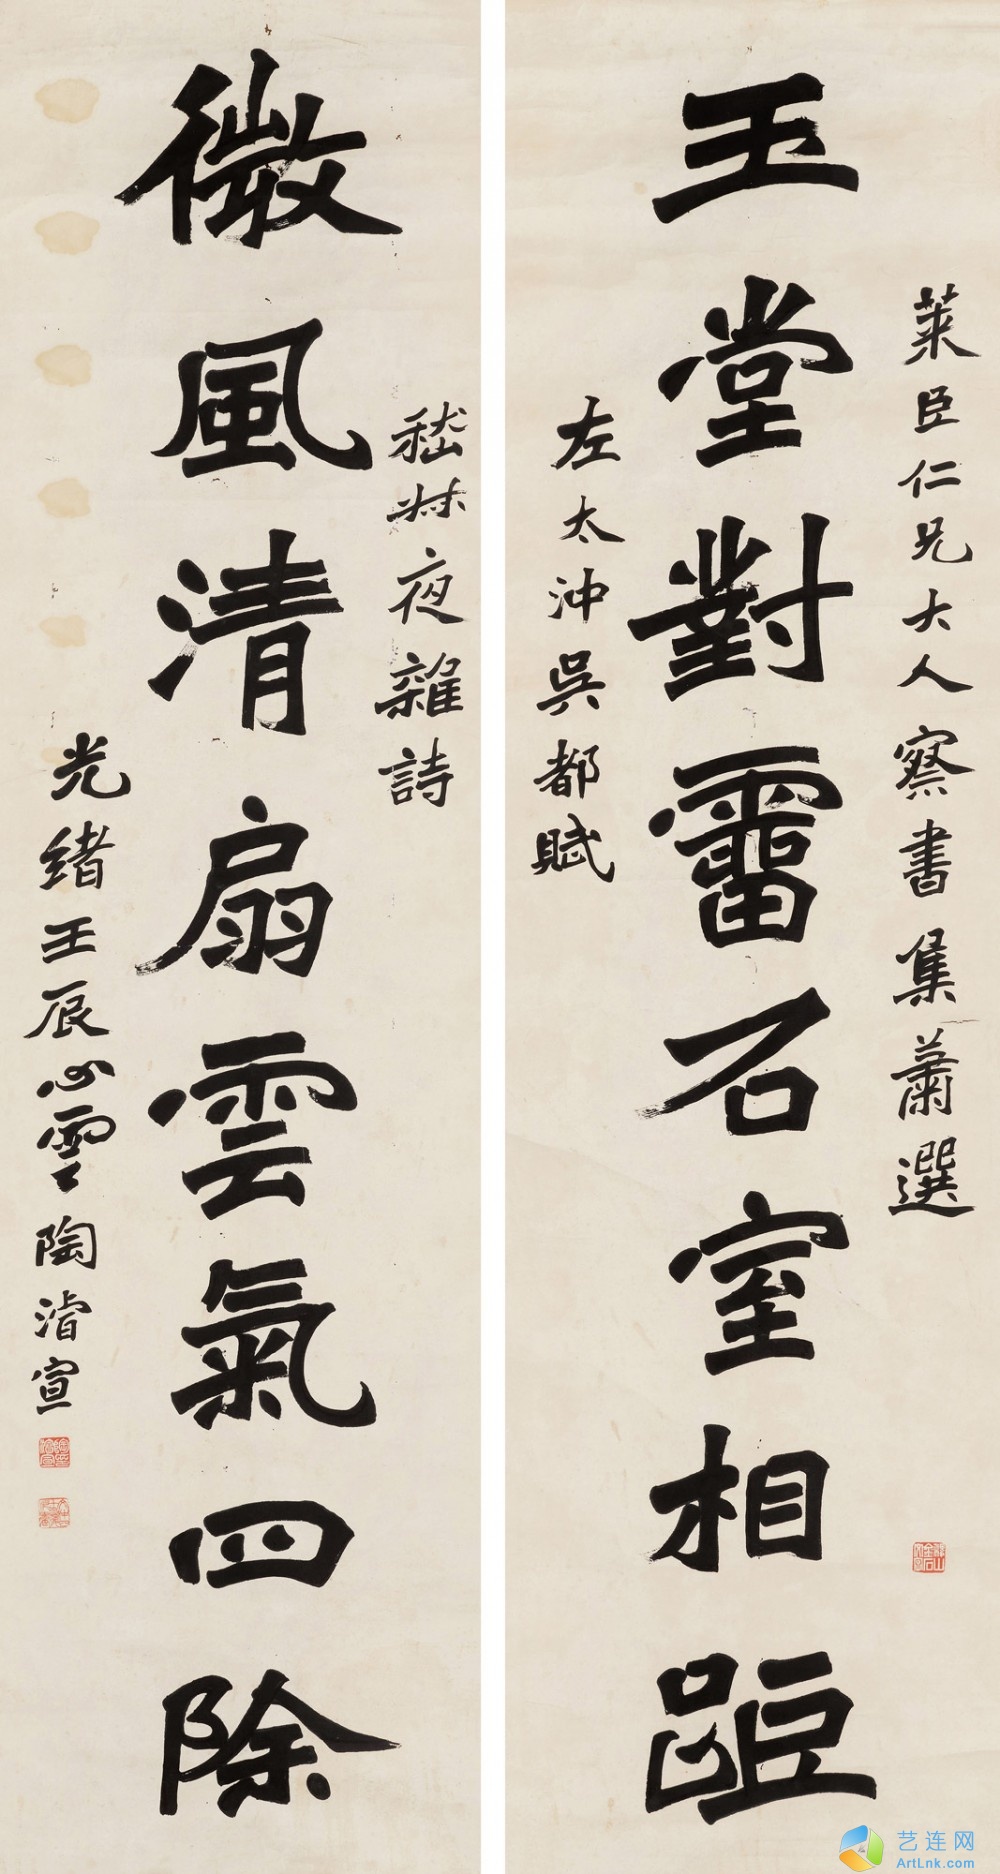 萊臣仁兄大人察書集蕭選
玉堂對霤石室相距
左太沖吳都賦
嵇叔夜雜詩
微風清扇雲氣四除
光緒壬辰心雲陶濬宣
艺连网
ArtLnk.com